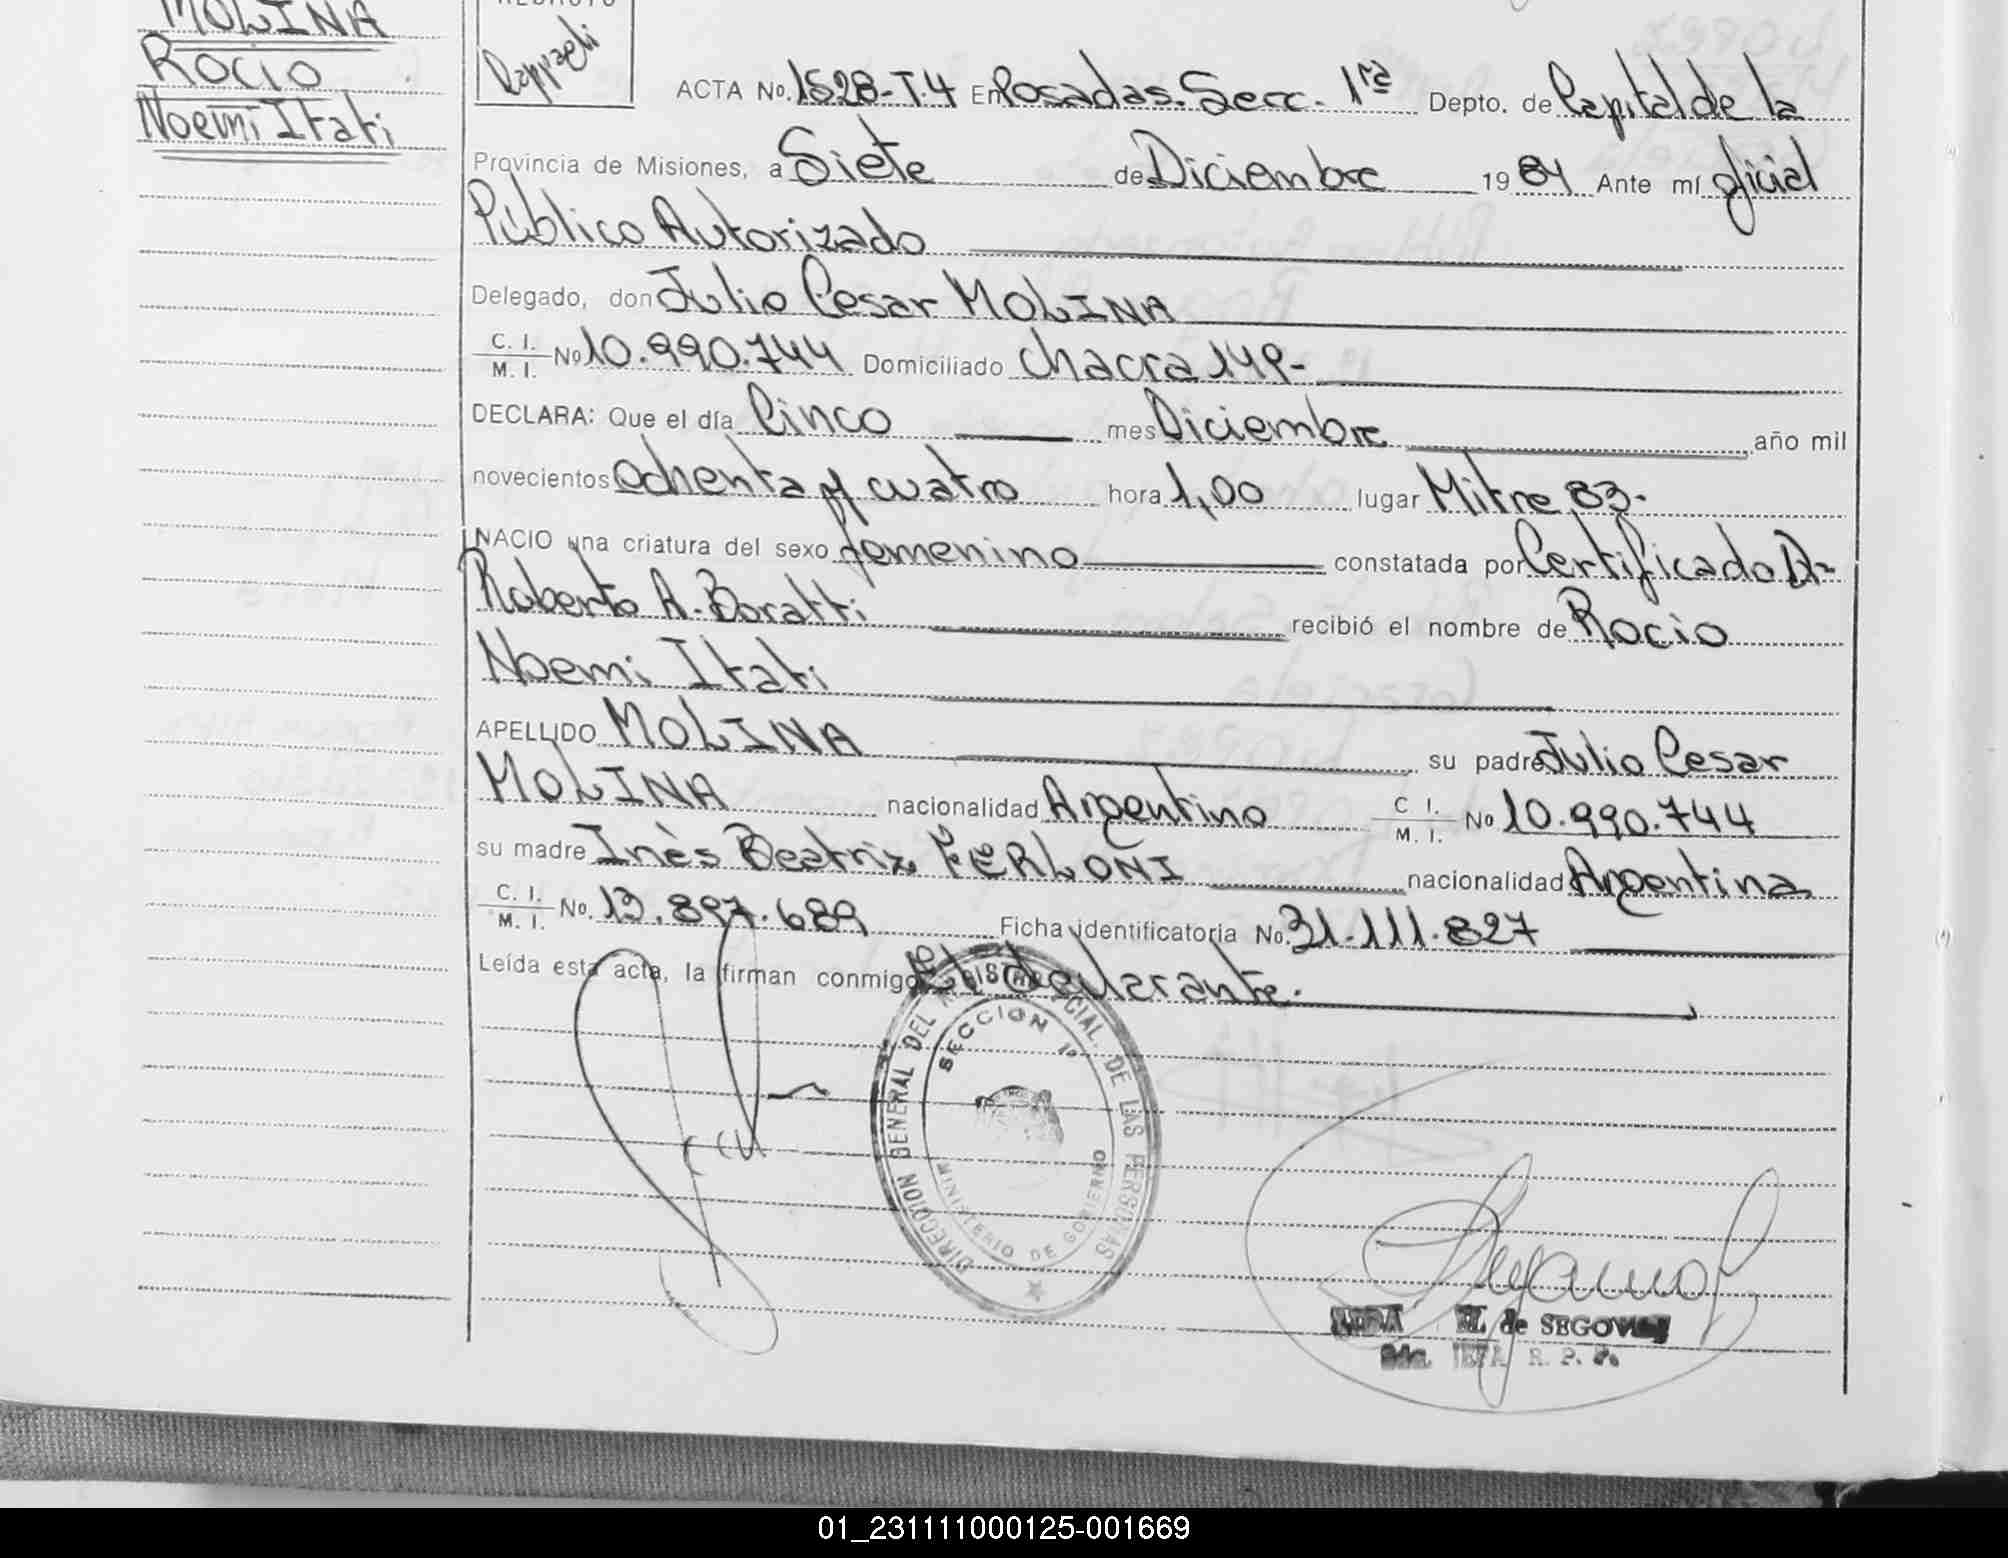 MOLINA
Rocio
Noemi Itati
ACTA No. 1528-T.4 En Posadas. Secc. 1ra Depto. de Capital de la
Provincia de Misiones, a Siete de Diciembre 1984 Ante mí oficial
Público Autorizado
Delegado, don Julio Cesar MOLINA
C. I.
M. I. No 10.990.744 Domiciliado Chacra 149-
DECLARA: Que el día Cinco mes Diciembre año mil
novecientos ochenta y cuatro hora 1,00 lugar Mitre 83-
NACIO una criatura del sexo femenino constatada por Certificado Dr
Roberto A. Boratti recibió el nombre de Rocio
Noemi Itati
APELLIDO MOLINA su padre Julio Cesar
MOLINA nacionalidad Argentino C. I.
M. I. No 10.990.744
su madre Inès Beatriz FERLONI nacionalidad Argentina
C. I.
M. I. No. 13.897.689 Ficha identificatoria No. 31.111.827
Leída esta acta, la firman conmigo El declarante.
DIRECCION GENERAL DEL REGISTRO PROVINCIAL DE LAS PERSONAS
SECCION 1a
MINISTERIO DE GOBIERNO
de SEGOVIA
2da. JEFA R. P. P.
01_231111000125-001669